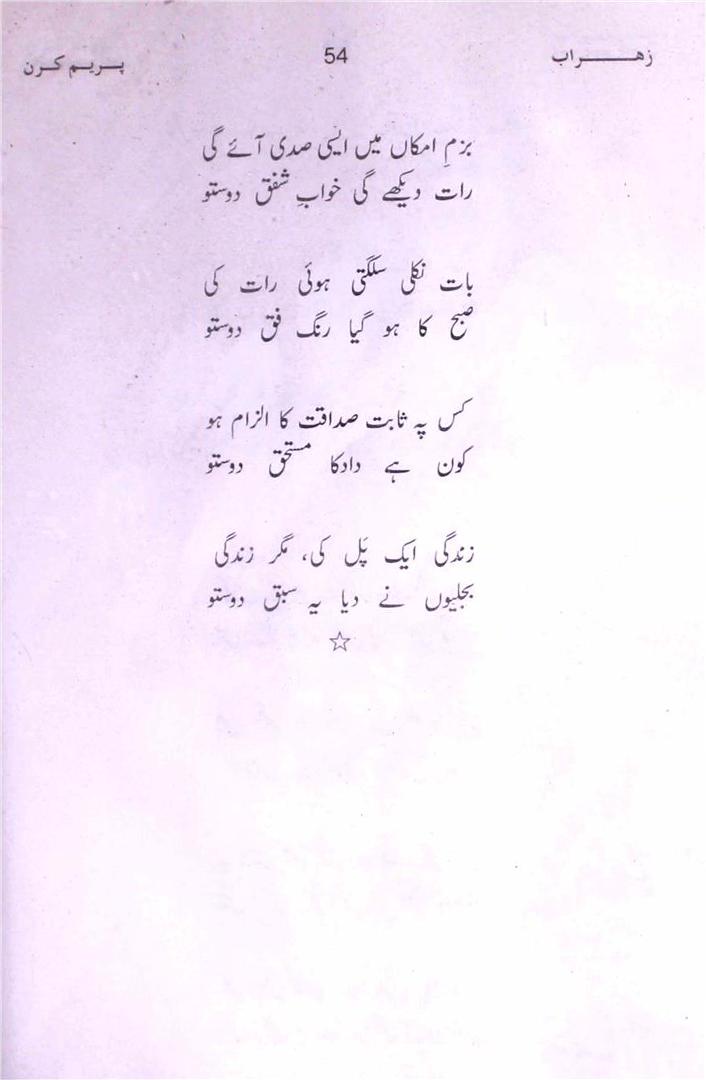 زهراب 54 پریم کرن
بزمِ امکاں میں ایسی صدی آئے گی
رات دیکھے گی خوابِ شفق دوستو
بات نکلی سلگتی ہوئی رات کی
صبح کا ہو گیا رنگ فق دوستو
کس پہ ثابت صداقت کا الزام ہو
کون ہے دادکا مستحق دوستو
زندگی ایک پَل کی، مگر زندگی
بجلیوں نے دیا یہ سبق دوستو
☆